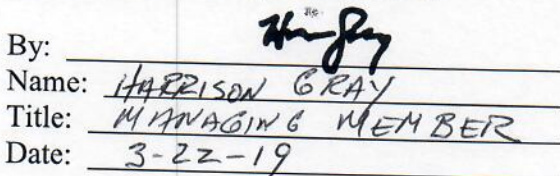 By:
Name: HARRISON GRAY
Title: MANAGING MEMBER
Date: 3-22-19